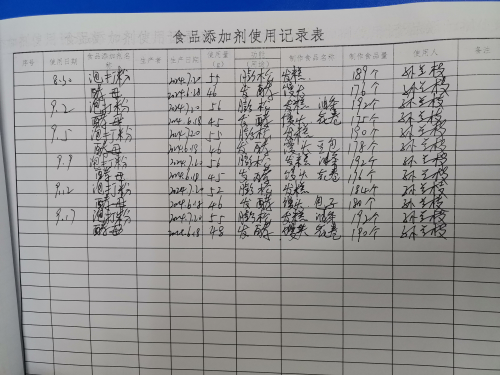 食品添加剂使用记录表
序号 使用日期 食品添加剂名 生产者 生产日期 使用量(g) 制作食品名称 制作食品量 使用人 备注
8.30 泡打粉 2024.7.20 55 膨松 发糕 189个
酵母 2024.6.18 46 发酵 馒头 176个
9.2 泡打粉 2024.7.20 56 膨松 发糕 油条 192个
酵母 2024.6.18 45 发酵 馒头 花卷 175个
9.5 泡打粉 2024.7.20 55 膨松 发糕 190个
酵母 2024.6.18 46 发酵 馒头 178个
9.9 泡打粉 2024.7.20 56 膨松 发糕 油条 192个
酵母 2024.6.18 45 发酵 馒头 花卷 176个
9.12 泡打粉 2024.7.20 52 膨松 发糕
酵母 2024.6.18 46 发酵 馒头 包子 180个
9.17 泡打粉 2024.7.20 55 膨松 发糕 油条 192个
酵母 2024.6.18 48 发酵 馒头 花卷 190个